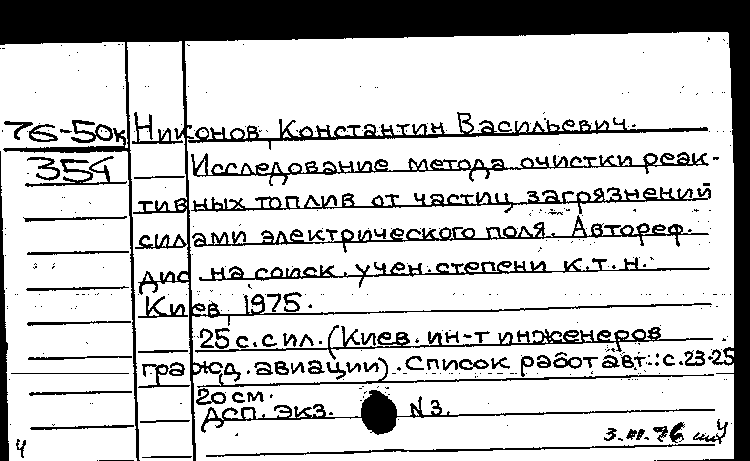 76-50к Никонов, Константин Васильевич.
354 Исследование метода очистки реак-
тивных топлив от частиц загрязнений
силами электрического поля. Автореф.
дис. на соиск. учен. степени к.т.н.
Киев, 1975.
25 с. с ил. (Киев. ин-т инженеров
гражд. авиации). Список работ авт.: с. 23-25
20 см.
ДСП. Экз. N 3.
3.III.76
ч ч